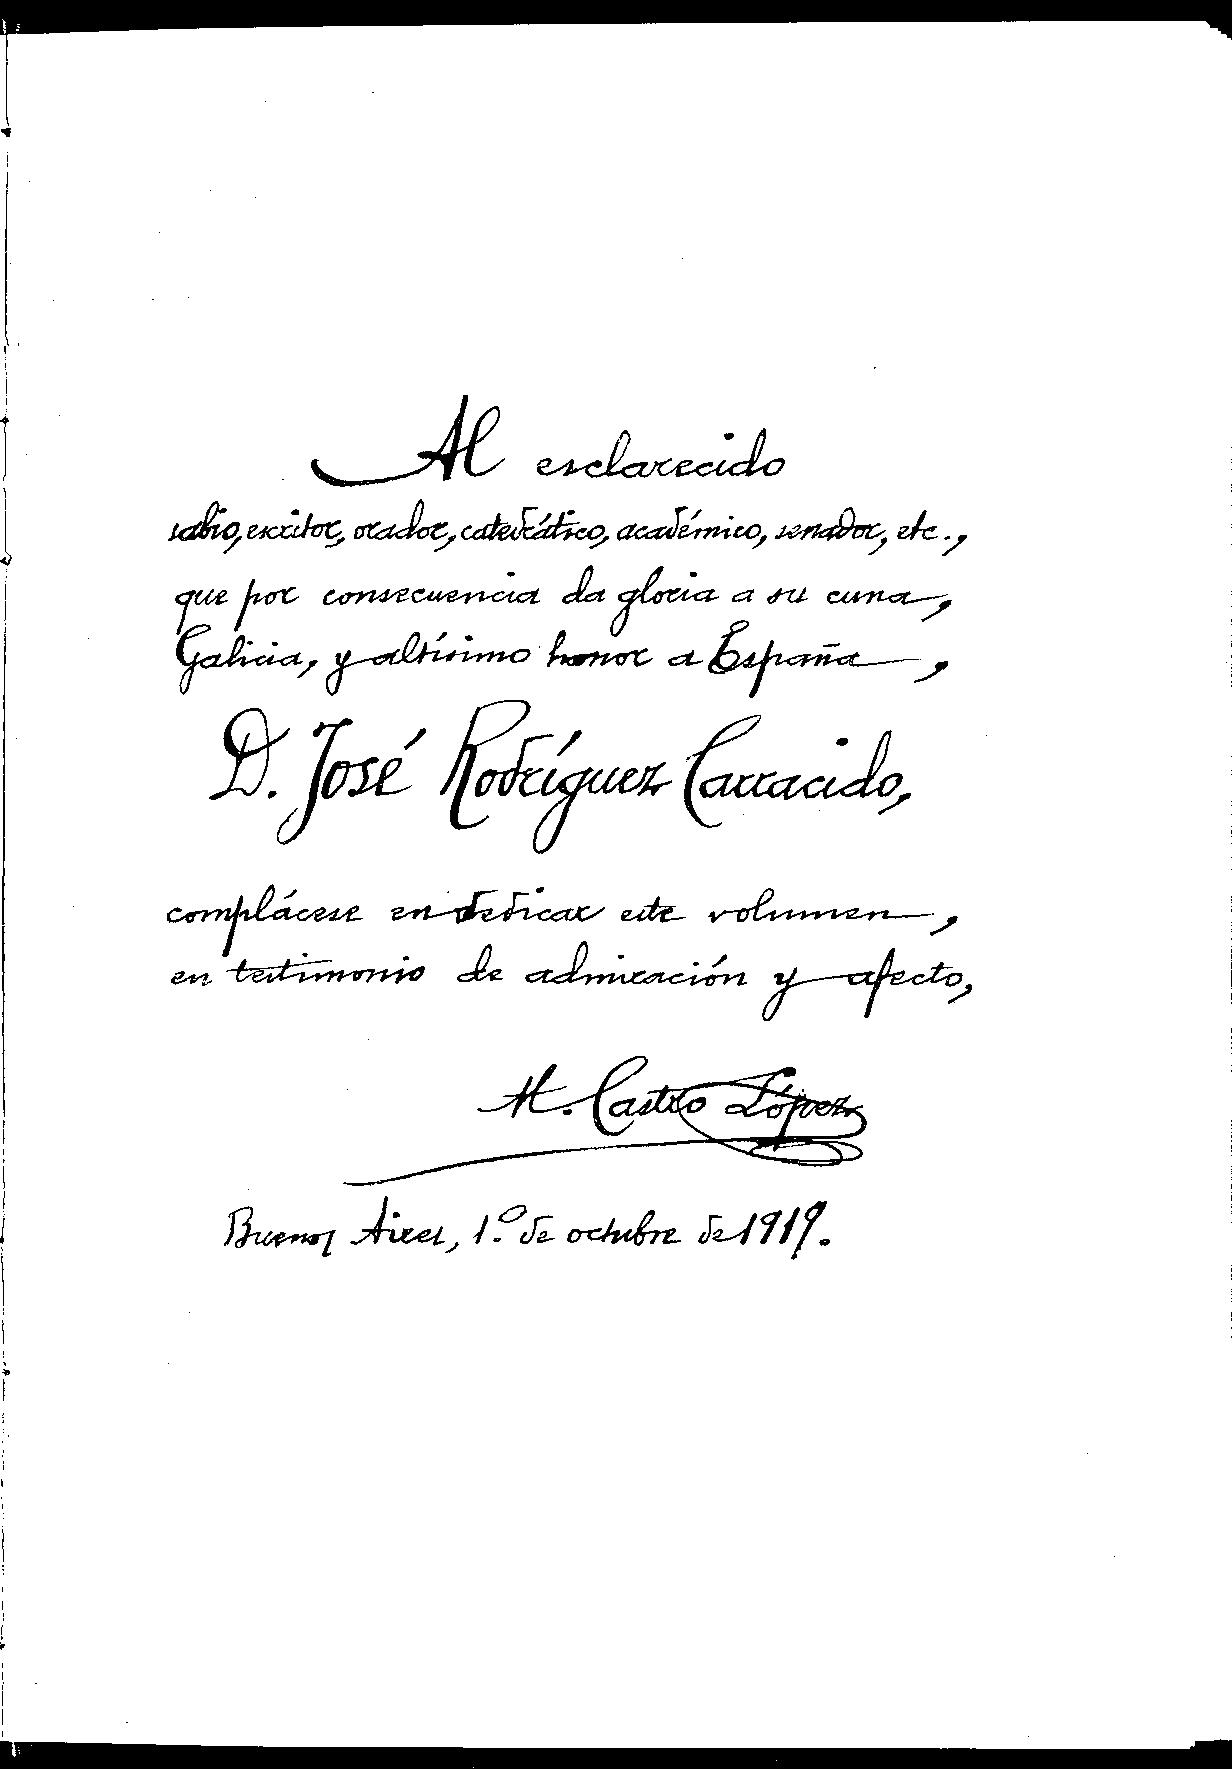 Al esclarecido
sabio, escritor, orador, catedrático, académico, senador, etc.,
que por consecuencia da gloria a su cuna,
Galicia, y altísimo honor a España,
D. José Rodríguez Carracido,
complácese en dedicar este volumen,
en testimonio de admiración y afecto,
M. Castro López
Buenos Aires, 1.º de octubre de 1919.